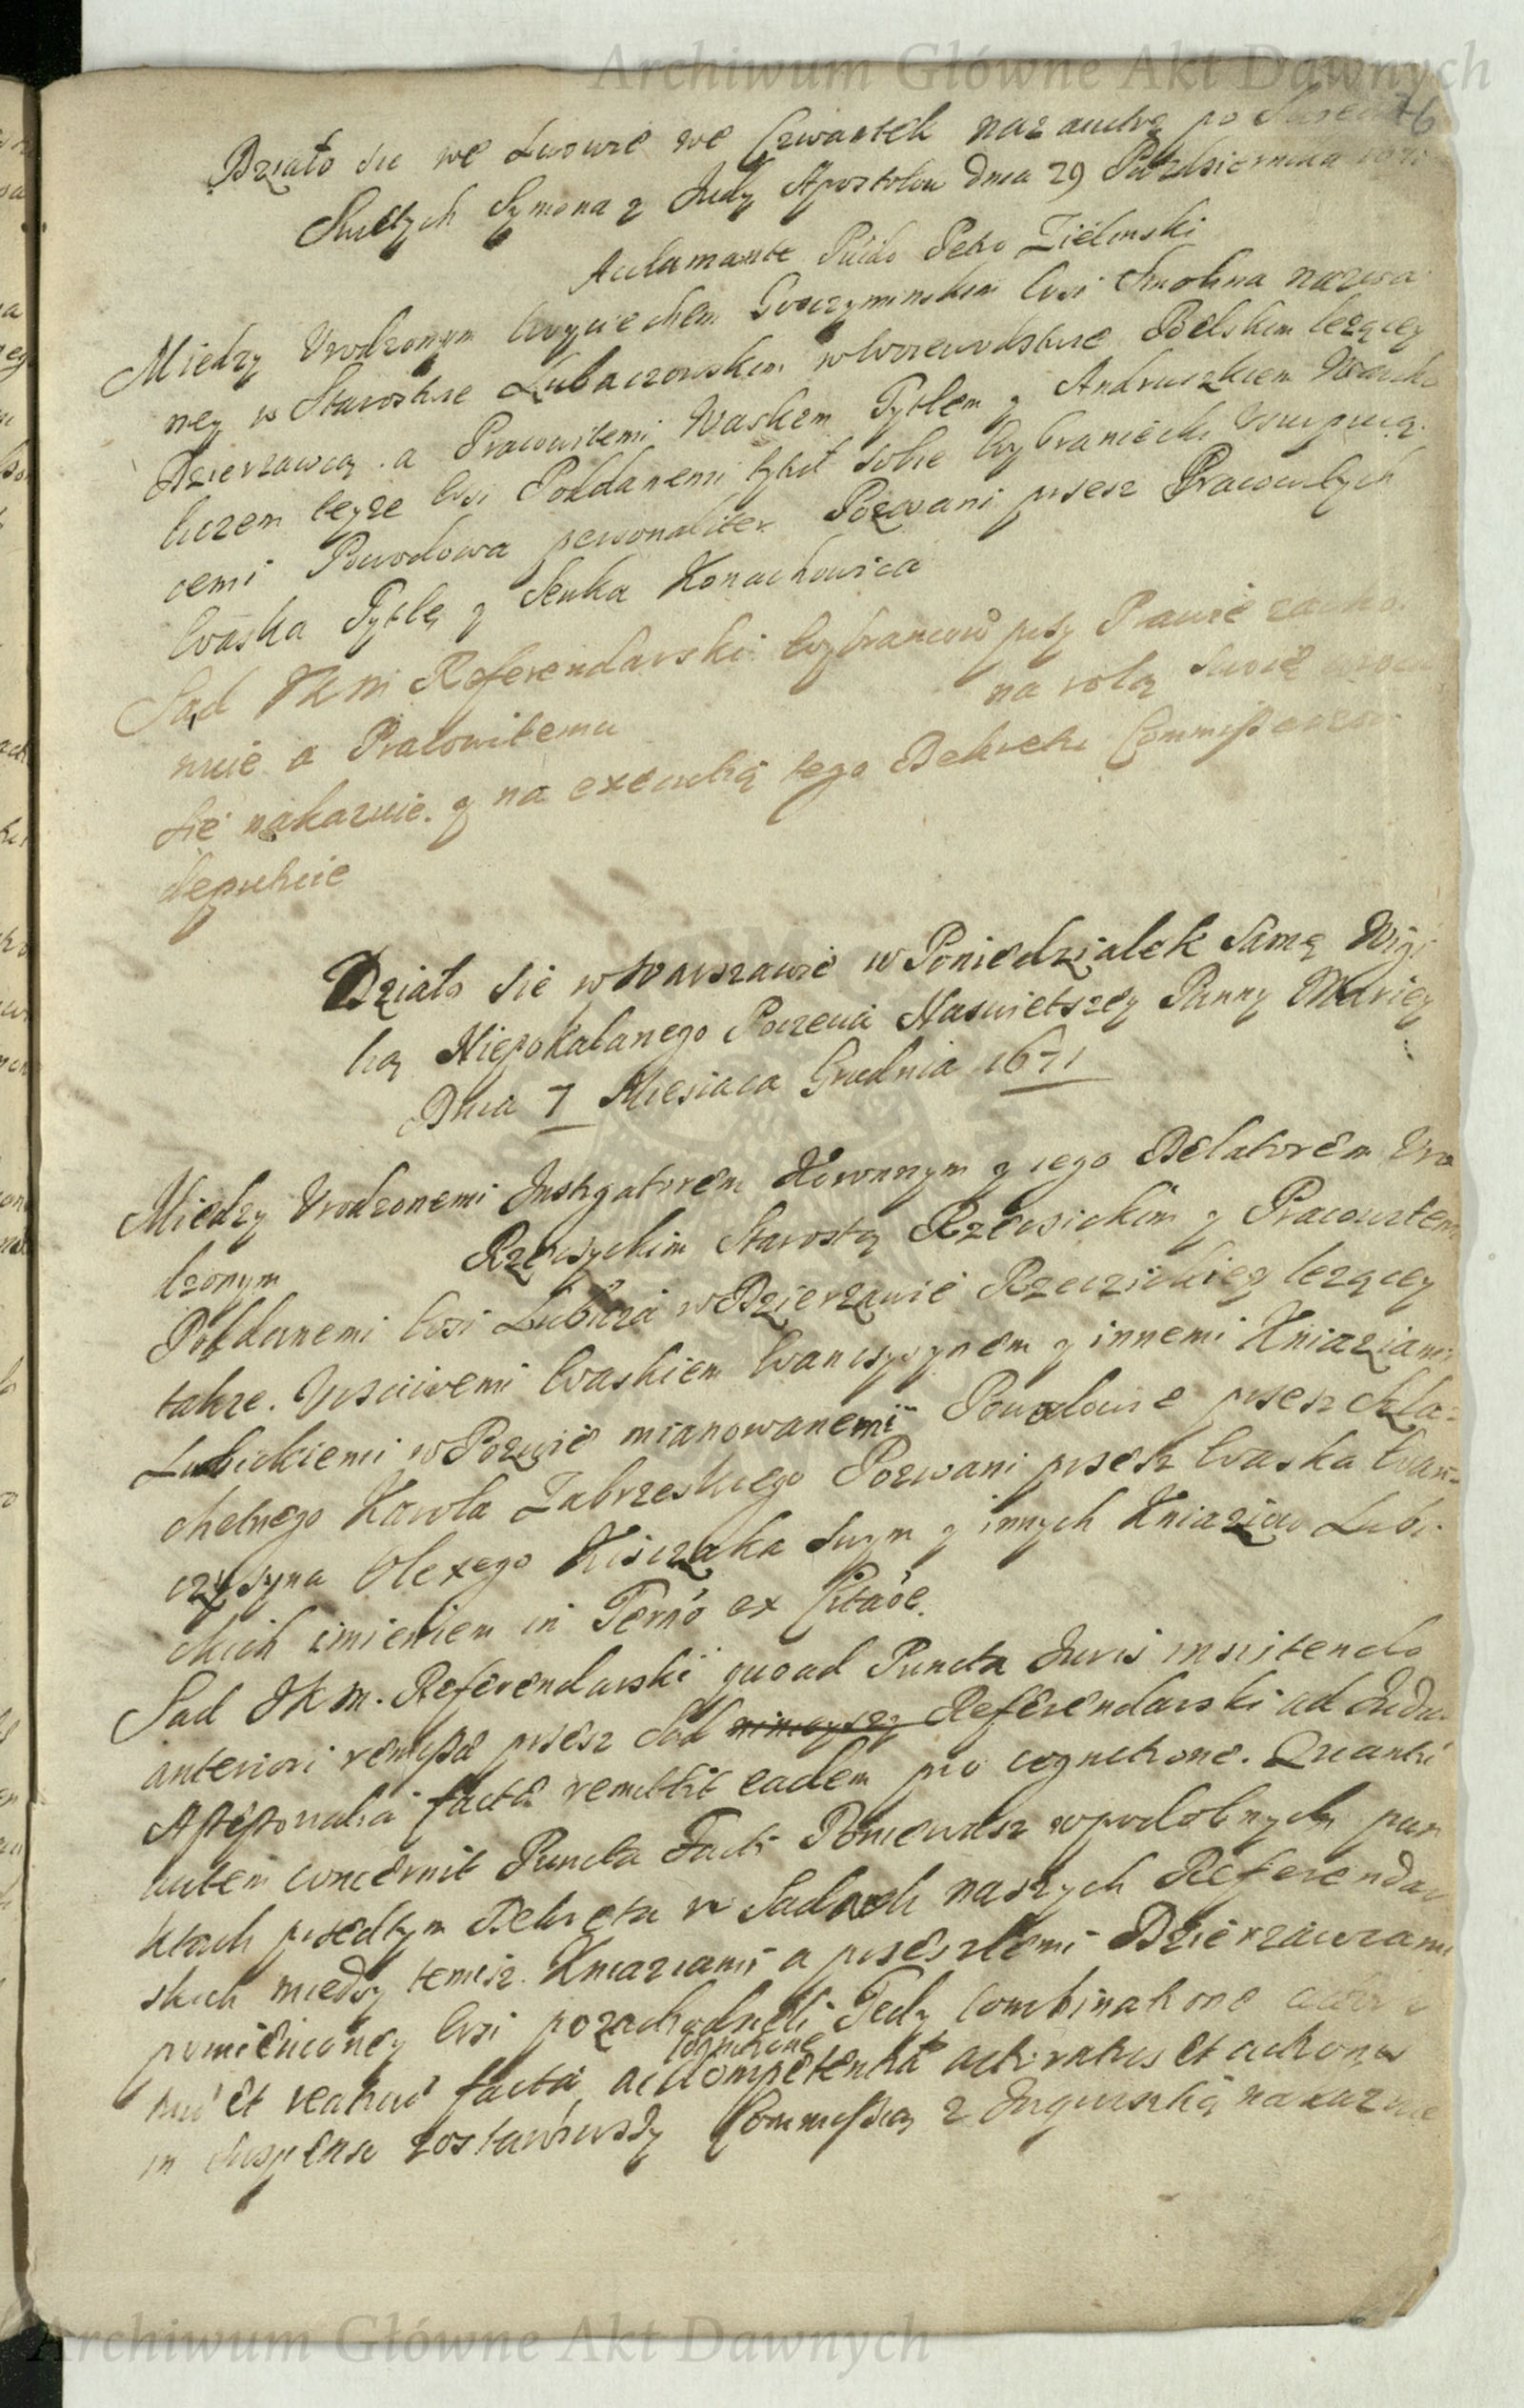 Archiwum Główne Akt Dawnych
76
Działo się we Lwowie we Czwartek nazaiutrz po
Swiętych Symona y Judy Apostołow Dnia 29 Pazdziernika
Acclamante Petro Zielinski
Miedzy Vrodzonym Woyciechem wsi Smolina nazwa
ney w Starostwie Lubaczowskim w Woiewodstwie Bełskim lezącey
Dzierzawcą. a Pracowitemi Waskem Tytłem y Andruszkiem
teyze wsi Poddanemi tytuł sobie Wybraniech Vsurpuią
cemi Powodowa personaliter Pozwani przez Pracowitych
Waska Tytlę y Senka Konachowica
Sąd JKM Referendarski Wybrancow przy Prawie zacho
wuie a Pracowitemu na rolą swoię
się nakazuie. y na executią tego Dekretu Commissarzow
deputuie
Działo się w Warszawie w Poniedziałek Samą Wigi
lią Niepokalanego Poczecia Naswietszey Panny Mariey
Dnia 7 Miesiaca Grudnia 1671
Miedzy Vrodzonemi Instygatorem Koronnym y iego Delatorem Vro
dzonym Rzewyckim Starostą y Pracowitem
Poddanemi wsi Lubicza w Dzierzawie lezącey
takze. Vcsciwemi Waskiem y innemi Kniaziami
Lubickiemi w Pozwie mianowanemi Powodowie przez Szla=
chetnego Karola Zabrzeskiego Pozwani przez Waska Iwan=
czysyna Olexego swym y innych Kniaziow Lubi
ckich imieniem in Termo ex Citaōe.
Sąd JKM. Referendarski quoad Puncta Juris insistendo
anteriori remissæ przez Sąd ninieyszy Referendarski ad Judicia
Assessorialia factæ remittit eadem pro cognitione. Quantū
autem concernit Puncta Facti Poniewasz w podobnych pun
ktach przedtym Dekreta w Sądach naszych Referendar
skich miedzy temisz Kniaziami a przeszłemi Dzierzawcami
pomienioney wsi pozachodzieli Tedy combinatione
et reatus facta cognitione competentia actoratus et actionis
in suspenso zostawiwszy Commissią z Inquisitią nakazuie
Archiwum Główne Akt Dawnych